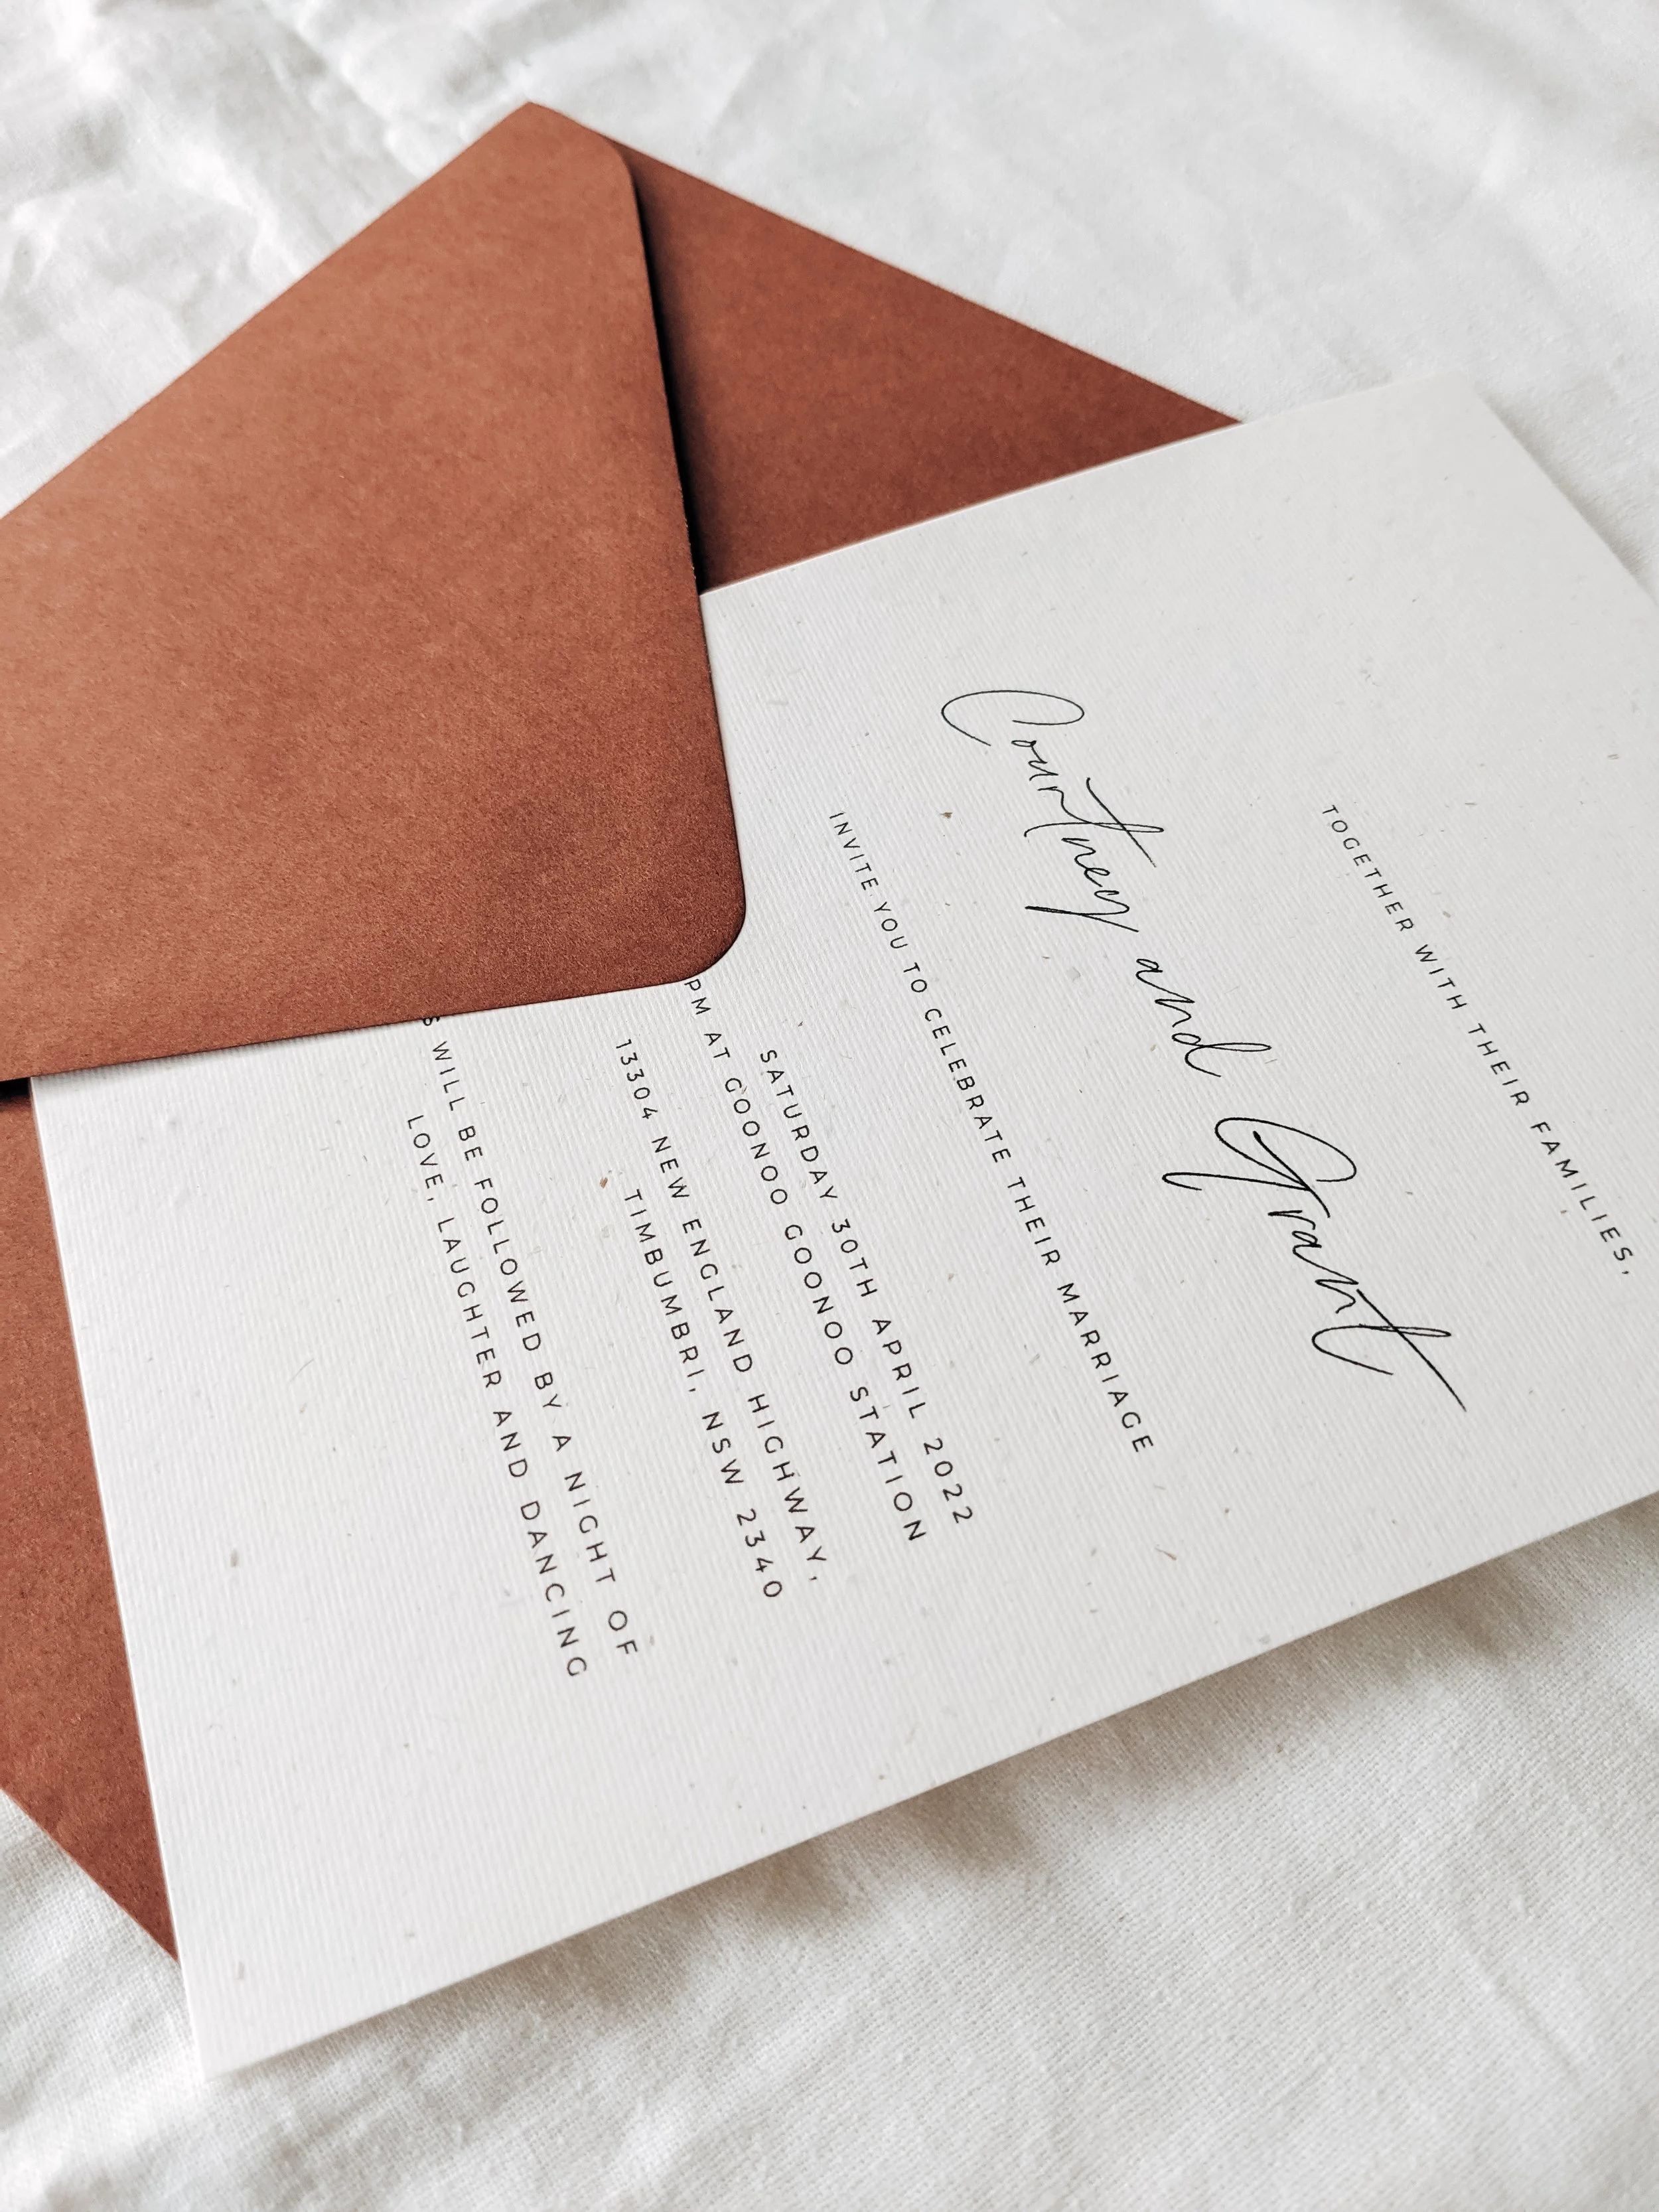 TOGETHER WITH THEIR FAMILIES,
Courtney and Grant
INVITE YOU TO CELEBRATE THEIR MARRIAGE
SATURDAY 30TH APRIL 2022
PM AT GOONOO GOONOO STATION
13304 NEW ENGLAND HIGHWAY,
TIMBUMBRI, NSW 2340
WILL BE FOLLOWED BY A NIGHT OF
LOVE, LAUGHTER AND DANCING